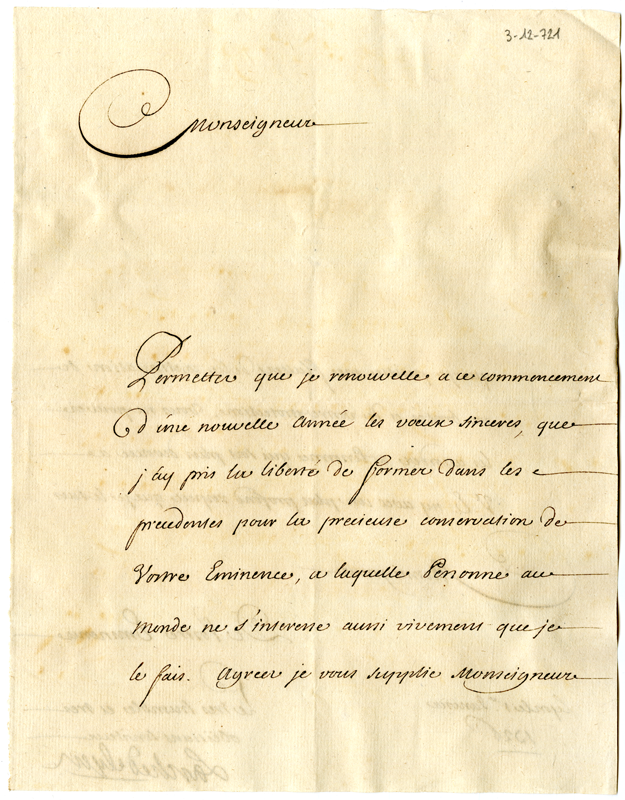 3-12-721
Monseigneur
Permetter que je renouvelle a ce commencement
d'une nouvelle année les vœux sinceres, que
j'ay pris la liberté de former dans les
precedentes pour la precieuse conservation de
Vostre Eminence, a laquelle Personne au
monde ne s'interesse aussi vivement que je
le fais. Agreer je vous supplie Monseigneur